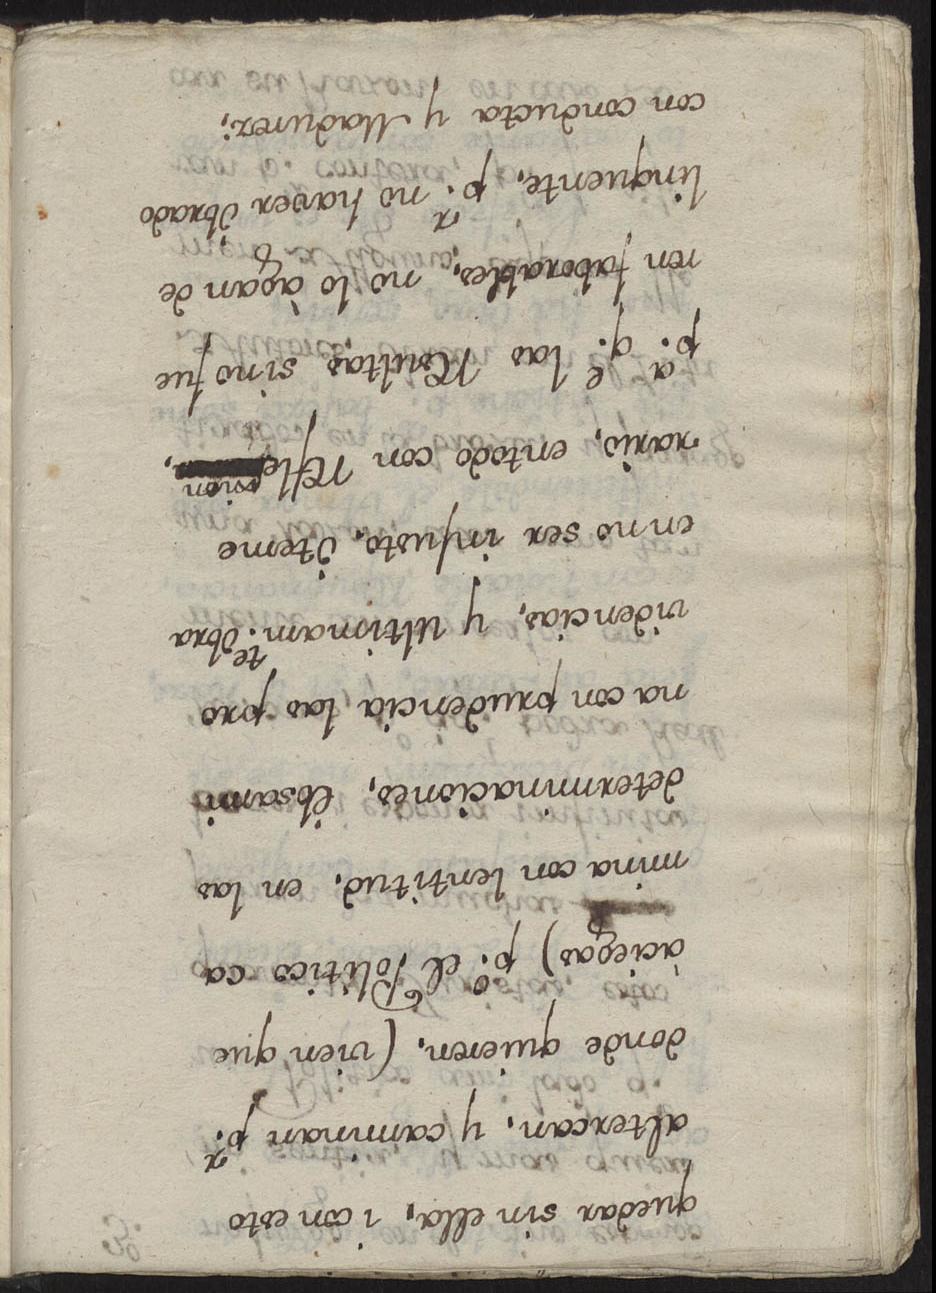 quedar sin ella, i con esto
altercan, y caminan p.r
donde quieren, (vien que
àciegas) p.o el Politico ca
mina con lentitud, en las
determinaciones, èxsami
na con prudencia las pro
videncias, y ultimam.te obra
en no ser injusto, òteme
rario, entodo con refle
xion,
p.a q.e las resultas, sino fue
ren faborables, no lo àgan de
linquente, p.r no haver obrado
con conducta y Madurez;